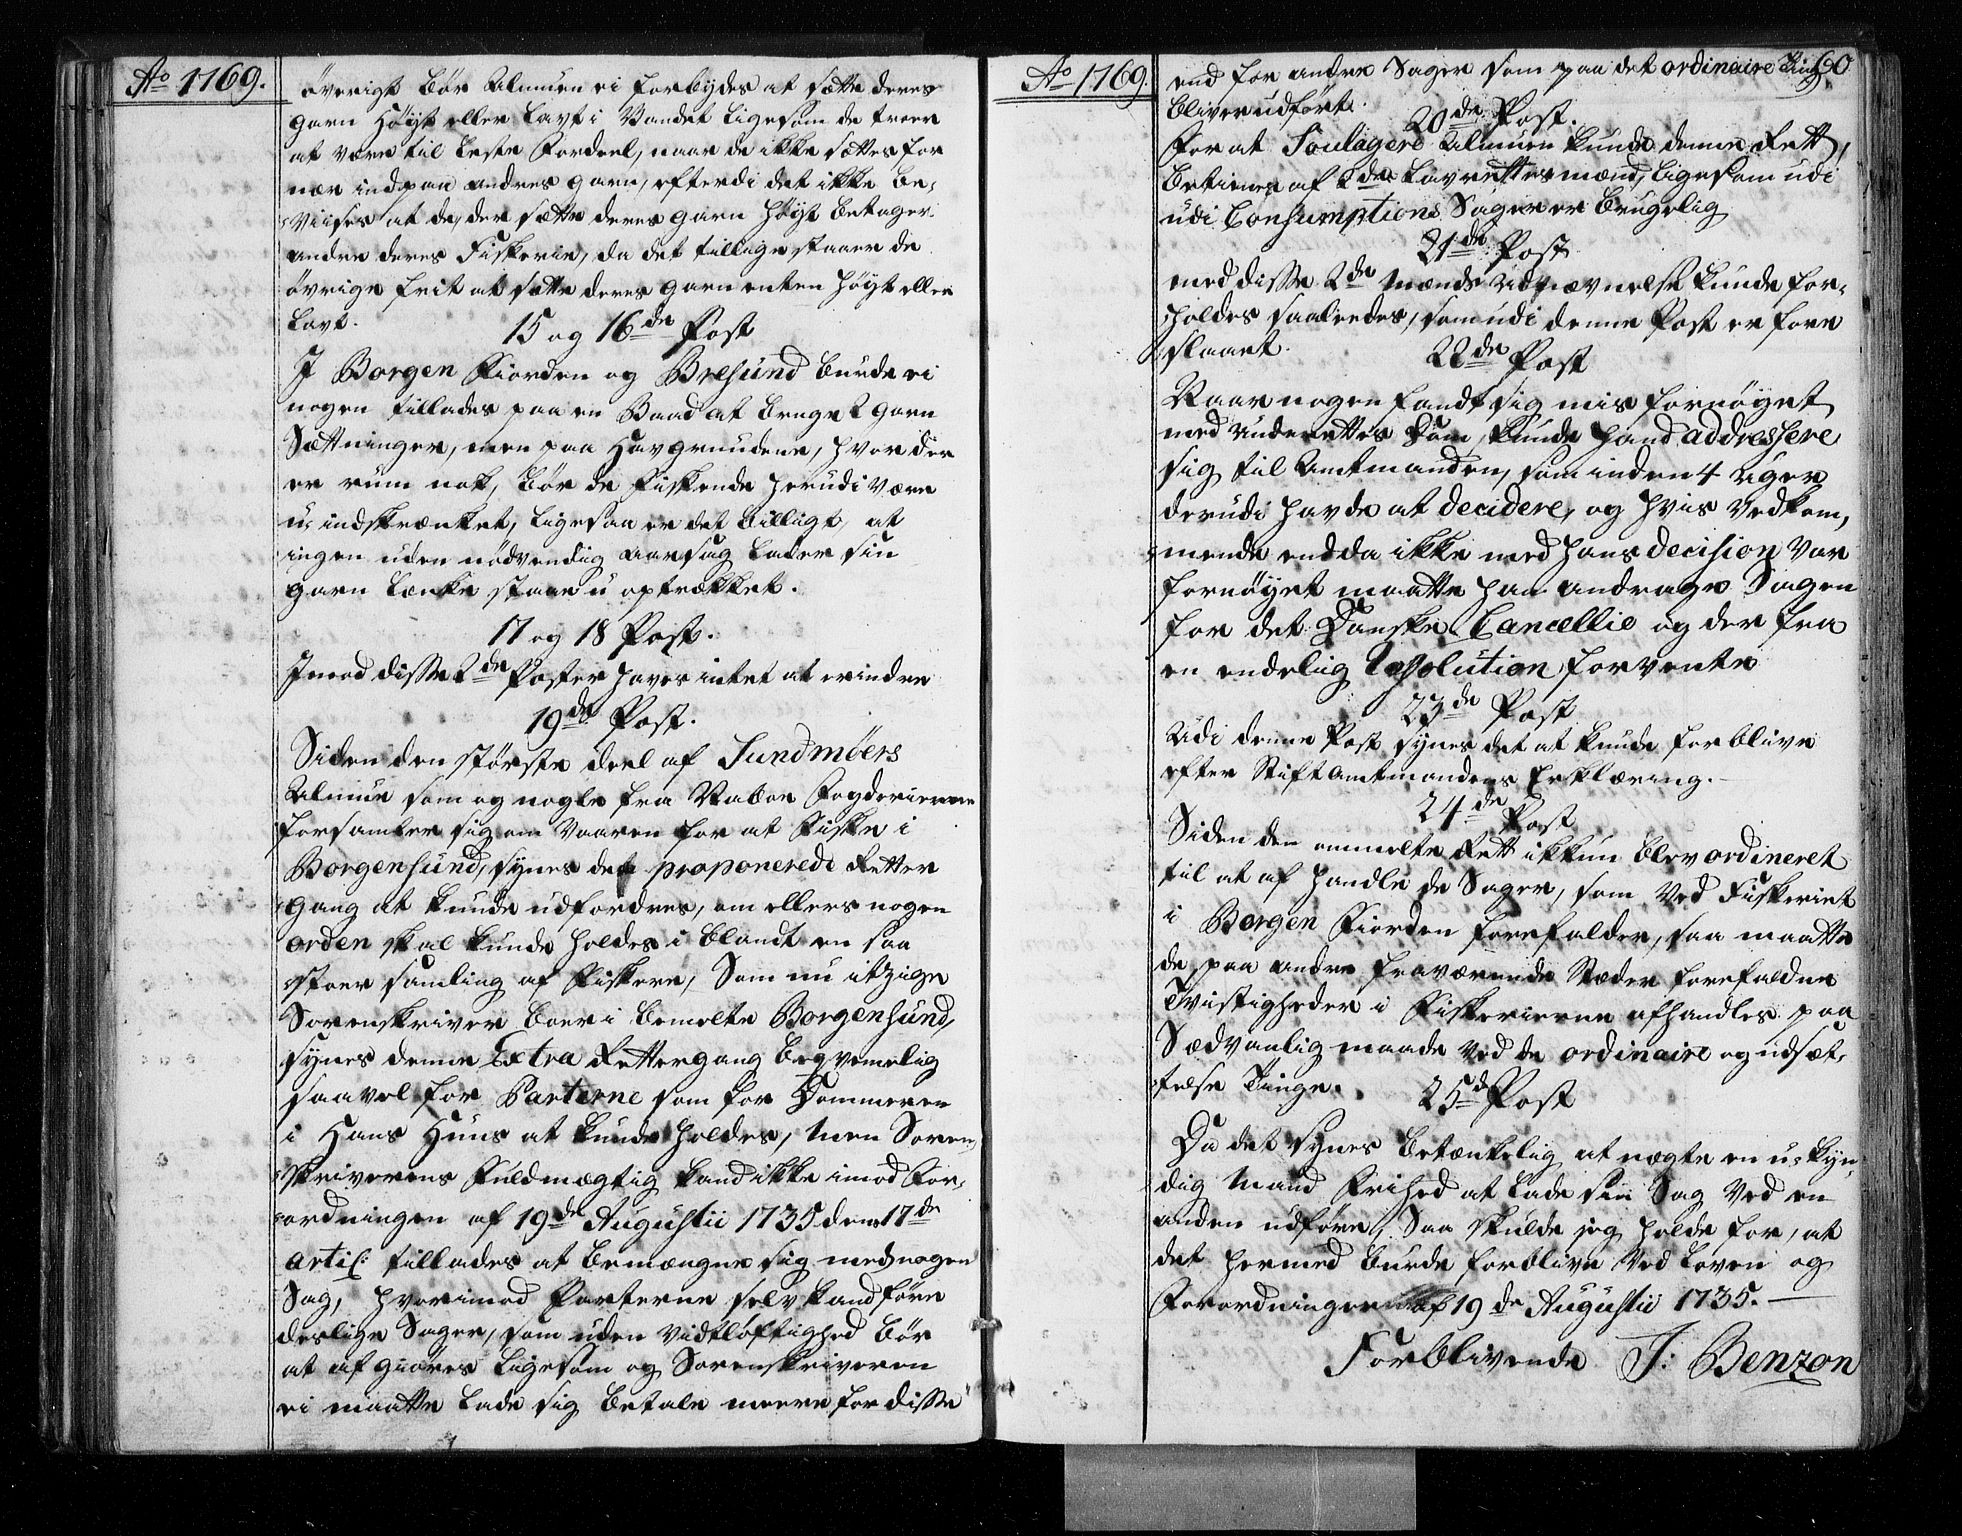 Ao 1769.
øvrigt bør Almuen ei forbydes at sætte deres
garn høyt eller lavt i Vandet ligesom de troer
at være til beste Fordeel, naar de ikke sættes for
nær indpaa andres garn, efterdi det ikke be-
viises at de, der sætte deres garn høyt betager
andre deres Fiskerie, da det tillige staaer de
øvrige frit at sætte deres garn enten høyt eller
lavt.
15 og 16de Post
I Borgen Fiorden og Bresund burde ei
nogen tillades paa en Baad at bruge 2 garn
Sættninger, men paa Havgrundene, hvor der
er rum nok, bør de Fiskende herudi være
u-indskrænket, ligesaa er det billigt, at
ingen uden nødvendig aarsag lader sin
garn Lænke staae u optrækket.
17 og 18 Post.
Imod disse 2de Poster haves intet at erindre
19de Post.
Siden den største deel af Sundmøers
Almue som og nogle fra Naboe Fogderierne
forsamler sig om Vaaren for at Fiske i
Borgensund, synes den proponerede Retter
gang at kunde udfordres, om ellers nogen
orden skal kunde holdes i blandt en saa
stoer samling af Fiskere, Som nu itzige
Sorenskriver boer i bemelte Borgensund,
synes denne Extra Rettergang beqvemelig
saavel for Parterne som for Dommeren
i Hans Huus at kunde holdes, men Soren-
skriverens Fuldmægtig kand ikke imod For-
ordningen af 19de Augustii 1735 dens 17de
Artic: tillades at bemænge sig med nogen
Sag, hvorimod Parterne selv kand føre
deslige Sager, som uden vidtløftighed bør
at af giøres ligesom og Sorenskriveren
ei maatte lade sig betale meere for disse
Ao 1769.
60
end for andre Sager som paa det ordinaire Ting
bliver udført.
20de Post.
For at Soulagere Almuen kunde denne Rett,
betienes af 2de Lavrettesmænd, ligesom udi
udi Consumptions Sager er brugelig
21de Post
med disse 2de mænds udnævnelse kunde for-
holdes saaledes, som udi denne Post er fore
slaaet.
22de Post
Naar nogen fandt sig mis fornøyet
med underettes Dom, kunde hand addressere
sig til Amtmanden, som inden 4 uger
derudi havde at decidere, og hvis vedkom-
mende endda ikke med hans decision var
fornøyet maatte han andrage Sagen
for det Danske Cancellie og der fra
en endelig Resolution forvente
23de Post
Udi denne Post synes det at kunde forblive
efter Stiftamtmandens Erklæring.
24de Post
Siden den ommelte Rett ikkun blev ordineret
til at af handle de Sager, som ved Fiskeriet
i Borgen Fiorden forefalder, saa maatte
de paa andre fraværende Stæder forefaldne
Tvistigheder i Fiskerierne afhandles paa
Sædvanlig maade ved de ordinaire og udsæt-
telse Tinge.
25de Post
Da det synes betænkelig at nægte en u-kyn-
dig mand Frihed at lade sin Sag ved en
anden udføre, Saa skulde jeg holde for, at
det hermed burde forblive ved Loven og
Forordningen af 19de Augustii 1735.
Forblivende J: Benzon